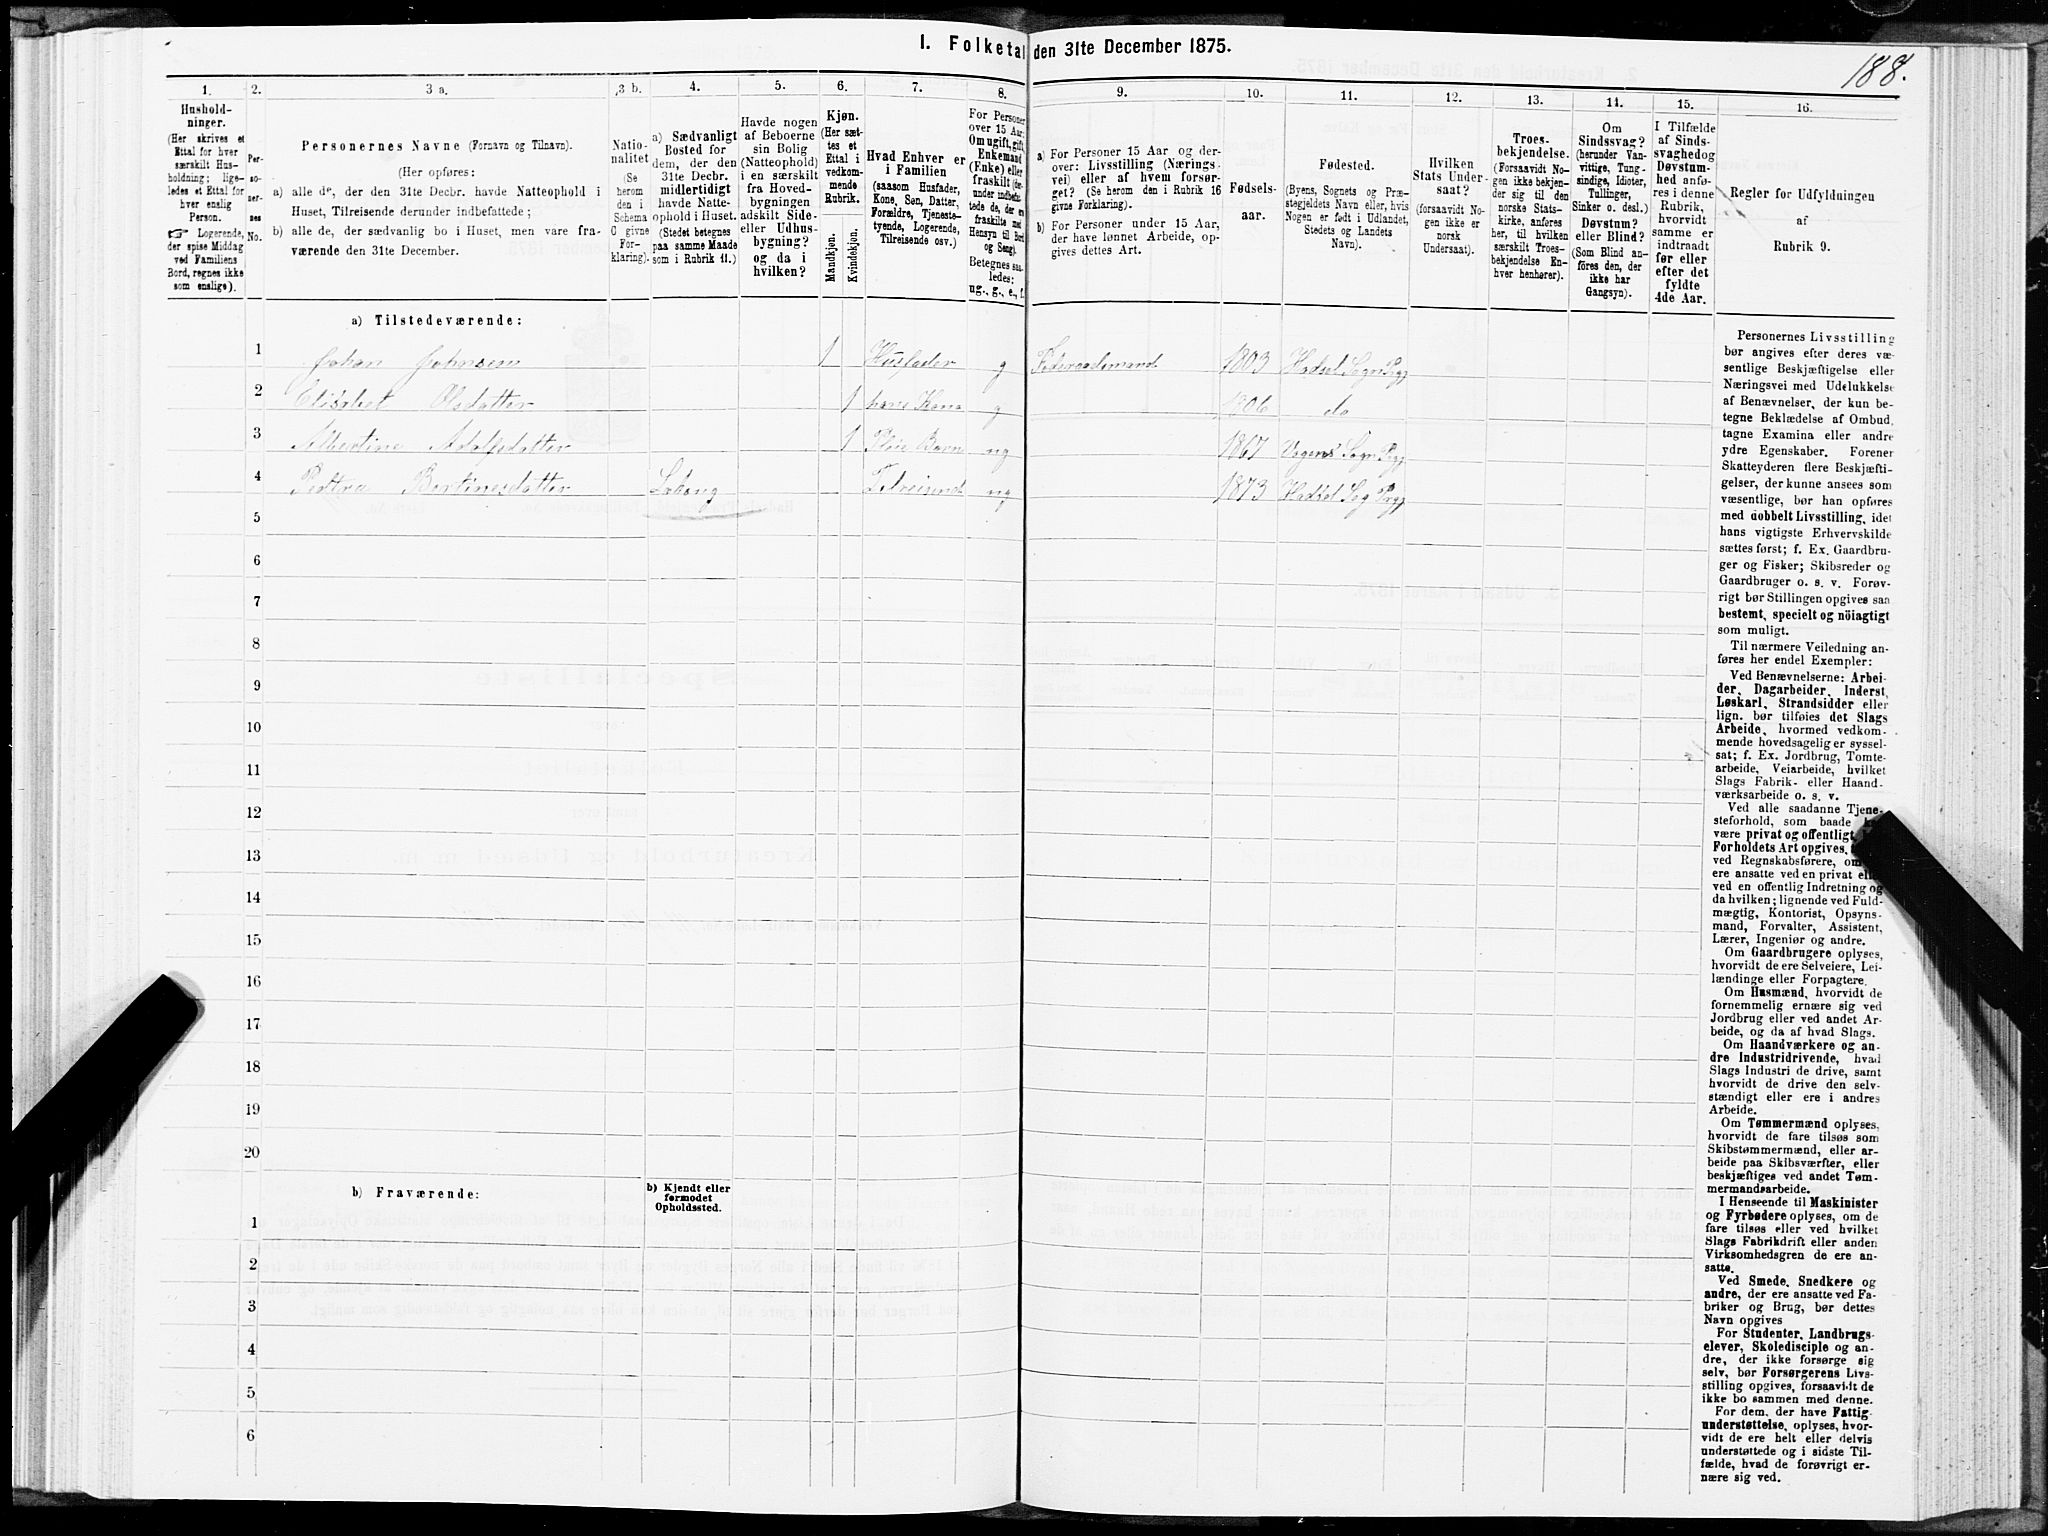 I. Folketal den 31te December 1875.
188.
1.
2.
3 a.
3 b.
4.
5.
6.
7.
8.
9.
10.
11.
12.
13.
14.
15.
16.
Hushold-
ninger.
(Her skrives et
Ettal for hver
særskilt Hus-
holdning; lige-
ledes et Ettal for
hver enslig
Person.
☞ Logerende,
der spise Middag
ved Familiens
Bord, regnes ikke
som enslige).
Per-
so-
ner-
nes
No.
Personernes Navne (Fornavn og Tilnavn).
(Her opføres:
a) alle de, der den 31te Decbr. havde Natteophold i
Huset, Tilreisende derunder indbefattede;
b) alle de, der sædvanlig bo i Huset, men vare fra-
værende den 31te December.
Natio-
nalitet
(Se
herom
den i
Schema
C givne
For-
klaring).
a) Sædvanligt
Bosted for
dem, der den
31te Decbr.
midlertidigt
havde Natte-
ophold i Huset.
(Stedet betegnes
paa samme Maade
som i Rubrik 11.)
Havde nogen
af Beboerne
sin Bolig
(Natteophold)
i en særskilt
fra Hoved-
bygningen
adskilt Side-
eller Udhus-
bygning?
og da i
hvilken?
Kjøn.
(Her sæt-
tes et
Ettal i
vedkom-
mende
Rubrik.
Mandkjøn.
Kvindekjøn.
Hvad Enhver er
i Familien
(saasom Husfader,
Kone, Søn, Datter,
Forældre, Tjeneste-
tyende, Logerende,
Tilreisende osv.)
For Personer
over 15 Aar:
Om ugift, gift,
Enkemand
(Enke) eller
fraskilt (der-
under indbefat-
tede de, der er
fraskilte med
Hensyn til Bord
og Seng).
Betegnes saa-
ledes:
ug., g., e., f.
a) For Personer 15 Aar og der-
over: Livsstilling (Nærings-
vei) eller af hvem forsør-
get? (Se herom den i Rubrik 16
givne Forklaring).
b) For Personer under 15 Aar,
der have lønnet Arbeide, op-
gives dettes Art.
Fødsels-
aar.
Fødested.
(Byens, Sognets og Præ-
stegjeldets Navn eller, hvis
Nogen er født i Udlandet,
Stedets og Landets
Navn).
Hvilken
Stats Under-
saat?
(forsaavidt No-
gen ikke er
norsk
Undersaat).
Troes-
bekjendelse.
(Forsaavidt No-
gen ikke bekjen-
der sig til den
norske Stats-
kirke, anføres
her, til hvilken
særskilt Troes-
bekjendelse En-
hver henhører).
Om
Sindssvag?
(herunder Van-
vittige, Tung-
sindige, Idioter,
Tullinger,
Sinker o. desl.)
Døvstum?
eller Blind?
(Som Blind an-
føres den, der
ikke har
Gangsyn).
I Tilfælde
af Sinds-
svaghed og
Døvstum-
hed anfø-
res i denne
Rubrik,
hvorvidt
samme er
indtraadt
før eller
efter det
fyldte
4de Aar.
Regler for Udfyldningen
af
Rubrik 9.
a) Tilstedeværende:
1 Johan Johnsen 1 Husfader g Føderaadsmand 1803 Hadsel Sogn Prgj
2 Elisabet Olsdatter 1 hans Kone g 1806 do
3 Albertine Adolfsdatter 1 Pleie Barn ug 1867 Sogn Prgj
4 Bertinesdatter Tilreisend ug 1873 Hadsel Sog Prgj
5
6
7
8
9
10
11
12
13
14
15
16
17
18
19
20
b) Fraværende:
b) Kjendt eller
formodet
Opholdssted.
1
2
3
4
5
6
Personernes Livsstilling
bør angives efter deres væ-
sentlige Beskjæftigelse eller
Næringsvei med Udelukkelse
af Benævnelser, der kun be-
tegne Beklædelse af Ombud,
tagne Examina eller andre
ydre Egenskaber. Forener
Skatteyderen flere Beskjæfti-
gelser, der kunne ansees som
væsentlige, bør han opføres
med dobbelt Livsstilling, idet
hans vigtigste Erhvervskilde
sættes først; f. Ex. Gaardbru-
ger og Fisker; Skibsreder og
Gaardbruger o. s. v. Forøv-
rigt bør Stillingen opgives saa
bestemt, specielt og nöiagtigt
som muligt.
Til nærmere Veiledning an-
føres her endel Exempler:
Ved Benævnelserne: Arbei-
der, Dagarbeider, Inderst,
Løskarl, Strandsidder eller
lign. bør tilføies det Slags
Arbeide, hvormed vedkom-
mende hovedsagelig er syssel-
sat; f. Ex. Jordbrug, Tomte-
arbeide, Veiarbeide, hvilket
Slags Fabrik- eller Haand-
værksarbeide o. s. v.
Ved alle saadanne Tjene-
steforhold, som baade
være privat og offentligt,
Forholdets Art opgives,
ved Regnskabsførere, om
ere ansatte ved en privat
ved en offentlig Indretning og
da hvilken; lignende ved Fuld-
mægtig, Kontorist, Opsyns-
mand, Forvalter, Assistent,
Lærer, Ingeniør og andre.
Om Gaardbrugere oplyses,
hvorvidt de ere Selveiere, Lei-
lændinge eller Forpagtere.
Om Husmænd, hvorvidt de
fornemmelig ernære sig ved
Jordbrug eller ved andet Ar-
beide, og da af hvad Slags.
Om Haandværkere og an-
dre Industridrivende, hvad
Slags Industri de drive, samt
hvorvidt de drive den selv-
stændigt eller ere i andres
Arbeide.
Om Tømmermænd oplyses,
hvorvidt de fare tilsøs som
Skibstømmermænd, eller ar-
beide paa Skibsværfter, eller
beskjæftiges ved andet Tøm-
mermandsarbeide.
I Henseende til Maskinister
og Fyrbødere oplyses, om de
fare tilsøs eller ved hvilket
Slags Fabrikdrift eller anden
Virksomhedsgren de ere an-
satte.
Ved Smede, Snedkere og
andre, der ere ansatte ved Fa-
briker og Brug, bør dettes
Navn opgives
For Studenter, Landbrugs-
elever, Skoledisciple og an-
dre, der ikke forsørge sig
selv, bør Forsørgerens Livs-
stilling opgives, forsaavidt de
ikke bo sammen med denne.
For dem, der have Fattig-
understøttelse, oplyses, hvor-
vidt de ere helt eller delvis
understøttede og i sidste Til-
fælde, hvad de forøvrigt er-
nære sig ved.